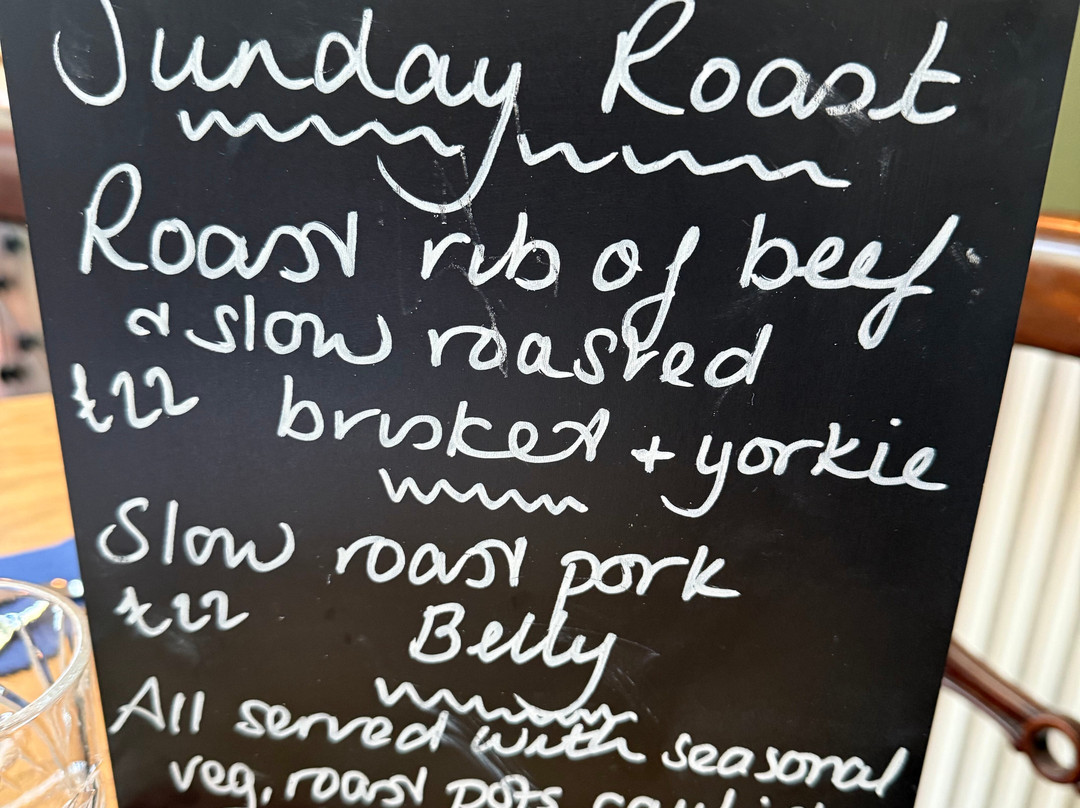 Sunday Roast
Roast rib of beef
& slow roasted
£22 brisket + yorkie
Slow roast pork
£22 Belly
All served with seasonal
veg, roast pots